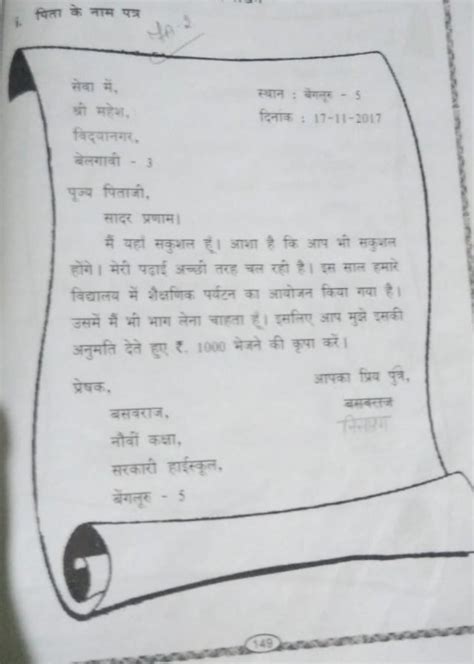 i. पिता के नाम पत्र
सेवा में,
स्थान : बेंगलूरु - 5
श्री महेश,
दिनाक : 17-11-2017
विद्यानगर,
बेलगावी - 3
पूज्य पिताजी,
सादर प्रणाम।
मैं यहाँ सकुशल हूँ। आशा है कि आप भी सकुशल
होंगे। मेरी पढ़ाई अच्छी तरह चल रही है। इस साल हमारे
विद्यालय में शैक्षणिक पर्यटन का आयोजन किया गया है।
उसमें मैं भी भाग लेना चाहता हूँ। इसलिए आप मुझे इसकी
अनुमति देते हुए ₹. 1000 भेजने की कृपा करें।
प्रेषक,
आपका प्रिय पुत्र,
बसवराज,
बसवराज
नौवीं कक्षा,
सरकारी हाईस्कूल,
बेंगलूरु - 5
149